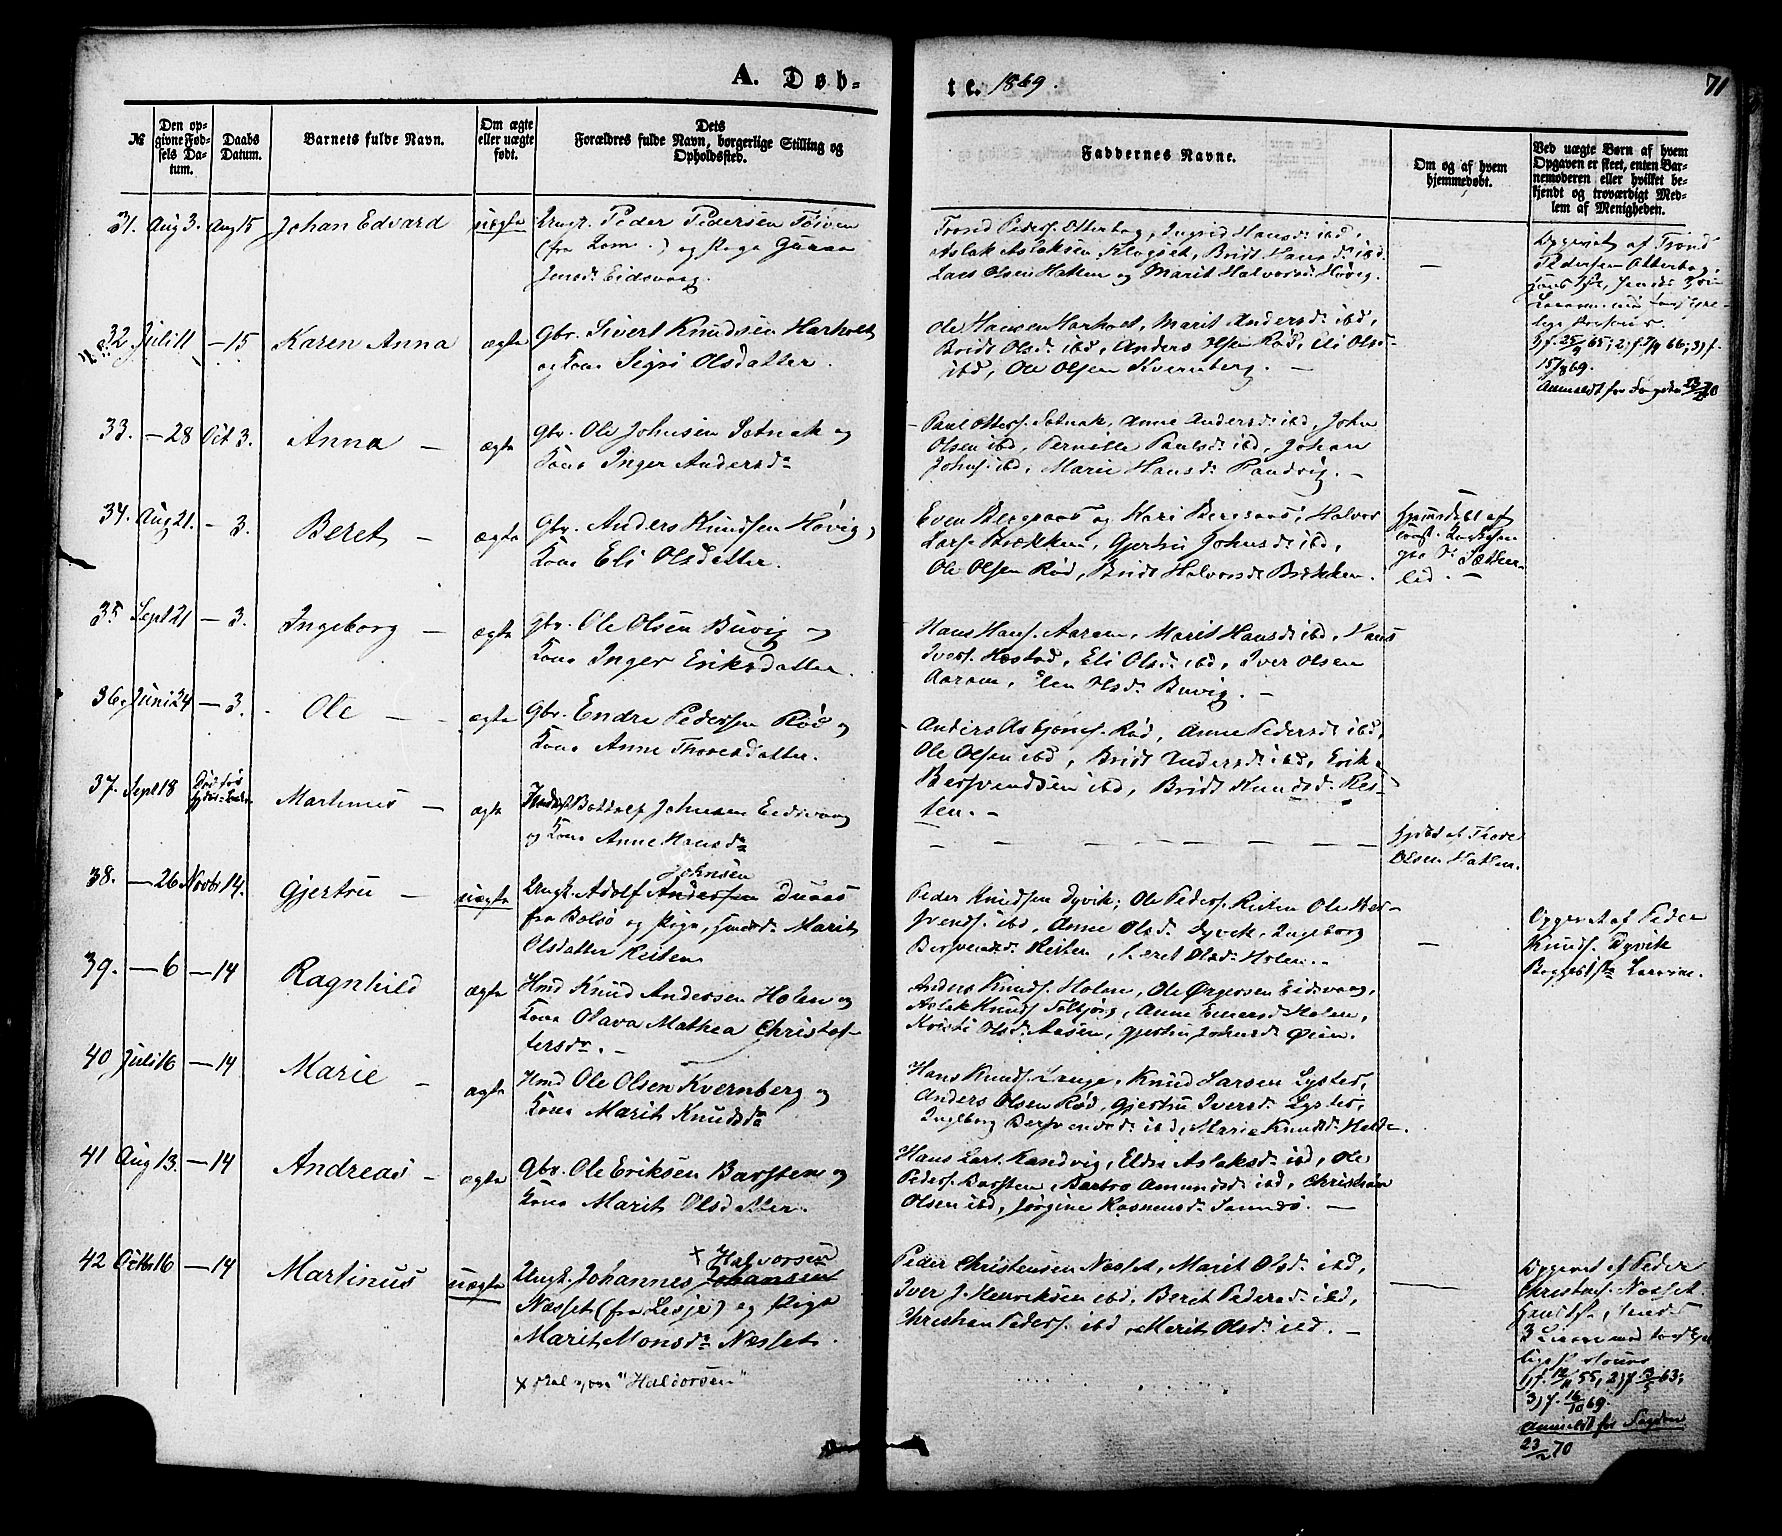 A. Døb-
te. 1869.
71
№
Den opgivne Fødsels Datum.
Daabs Datum.
Barnets fulde Navn.
Om ægte eller uægte født.
Dets Forældres fulde Navn, borgerlige Stilling og Opholdssted.
Faddernes Navne.
Om og af hvem hjemmedøbt.
Ved uægte Børn af hvem Opgaven er skeet, enten Barnemoderen eller hvilket bekjendt og troværdigt Medlem af Menigheden.
31. Aug 3. Aug 15 Johan Edvard uægte Ungk. Peder Pedersen
(fra Lom.) og Pige Guroe
Jensd. Eidsvaag.
Trond Peders. Otterbog, Ingrid Hansd. ibd,
Aslak Aslaksen Klogset, Bridt Hansd. ibd.
Lars Olsen Hatlen og Marit Halvorsd. Høvig.
—
Opgivet af Trond
Pedersen Otterbog,
32 Juli 11 — 15 Karen Anna ægte Gbr. Sivert Knudsen Harholt
og Kone Sigri Olsdatter.
Ole Hansen Harholt, Marit Andersd. ibd,
Bridt Olsd. ibd, Anders Olsen Rød, Eli Olsd.
ibd, Ole Olsen Kvernberg. —
1) f. 25/3 65; 2) f. 7/9 66; 3) f.
15/8 69.
33. — 28 Oct 3. Anna — ægte Gbr. Ole Johnsen Sotnak og
Kone Inger Andersd.
Paul Otters. Sotnak, Anne Andersd. ibd, John
Olsen ibd, Pernille Paulsd. ibd, Johan
Johns. ibd, Marie Hansd. Randvig. —
34. Aug 21. — 3. Beret — ægte Gbr. Anders Knudsen Høvig,
Kone Eli Olsdatter.
Even Bergsaas og Kari Bergsaas, Halvor
Lars. Brækken, Gjertru Johnsd. ibd,
Ole Olsen Rød, Bridt Halvorsd. Brækken.
Hjemmedøbt af
35 Sept 21 — 3. Ingeborg — ægte Gbr. Ole Olsen Buvig og
Kone Inger Eriksdatter.
Hans Hans. Aaram, Marit Hansd. ibd, Hans
Ivers. Næstad, Eli Olsd. ibd, Iver Olsen
Aaram, Elen Olsd. Buvig. —
36. Juni 24 — 3. Ole — ægte Gbr. Endre Pedersen Rød og
Kone Anne Thoresdatter.
Anders Asbjørns. Rød, Anne Pedersd. ibd,
Ole Olsen ibd, Bridt Andersd. ibd, Erik
Bersvendsen ibd, Bridt Knudsd. Reisten. —
37. Sept 18 Martinus — ægte Bottolf Johnsen Eidsvaag
og Kone Anne Hansd.
— — — — — — —
Hjdøbt af Thore
Olsen Hatlen.
38. — 26 Novbr 14. Gjertru — uægte Ungk. Adolf Andersen Johnsen
fra Bolsø og Pige, Marit
Olsdatter Reisten
Peder Knudsen Dyvik; Ole Peders. Reisten Ole Bersvends. ibd, Anne Olsd. Dyvik, Ingeborg
Bersvendsd. Reisten, Beret Olsd. Holen.
—
Opgivet af Peder
Knuds. Dyvik
39. — 6 — 14 Ragnhild ægte Hmd Knud Andersen Holen og
Kone Olava Mathea Christoffersd. —
Anders Knuds. Holen, Ole Ørgersen Eidsvaag,
Aslak Knuds. Toltjøng, Anne Einersd. Holen,
Kristi Olsd. Aasen, Gjertru Johnsd. Øien.
40 Juli 16 — 14 Marie — ægte Hmd Ole Olsen Kvernberg og
Kone Marit Knudsd.
Hans Knuds. Lange, Knud Larsen Lyster,
Anders Olsen Rød, Gjertru Iversd. Lyster,
Ingeborg Bersvendsd. ibd, Marie Knudsd.
41 Aug 13. — 14 Andreas — ægte Gbr. Ole Eriksen Barsten og
Kone Marit Olsdatter.
Hans Lars. Randvig, Eldri Aslaksd. ibd, Ole
Peders. Barsten, Barbro Amundsd. ibd, Christian
Olsen ibd, Jørgine Rasmusd. —
42 Octbr 16 — 14 Martinus uægte Ungk. Johannes Johansen × Halvorsen
Næsset (fra Lesje) og Pige
Marit Monsd. Næsset.
× skal være "Haldorsen"
Peder Christensen Næsset, Marit Olsd. ibd,
Iver J. Henriksen ibd, Berit Pedersd. ibd,
Christian Peders. ibd, Marit Olsd. ibd. —
—
Opgivet af Peder
Christens. Næsset.
1) f. 12/11 55, 2) f. 3/5 63;
3) f. 16/10 69.
Anmeldt for Fogden
23/2 70